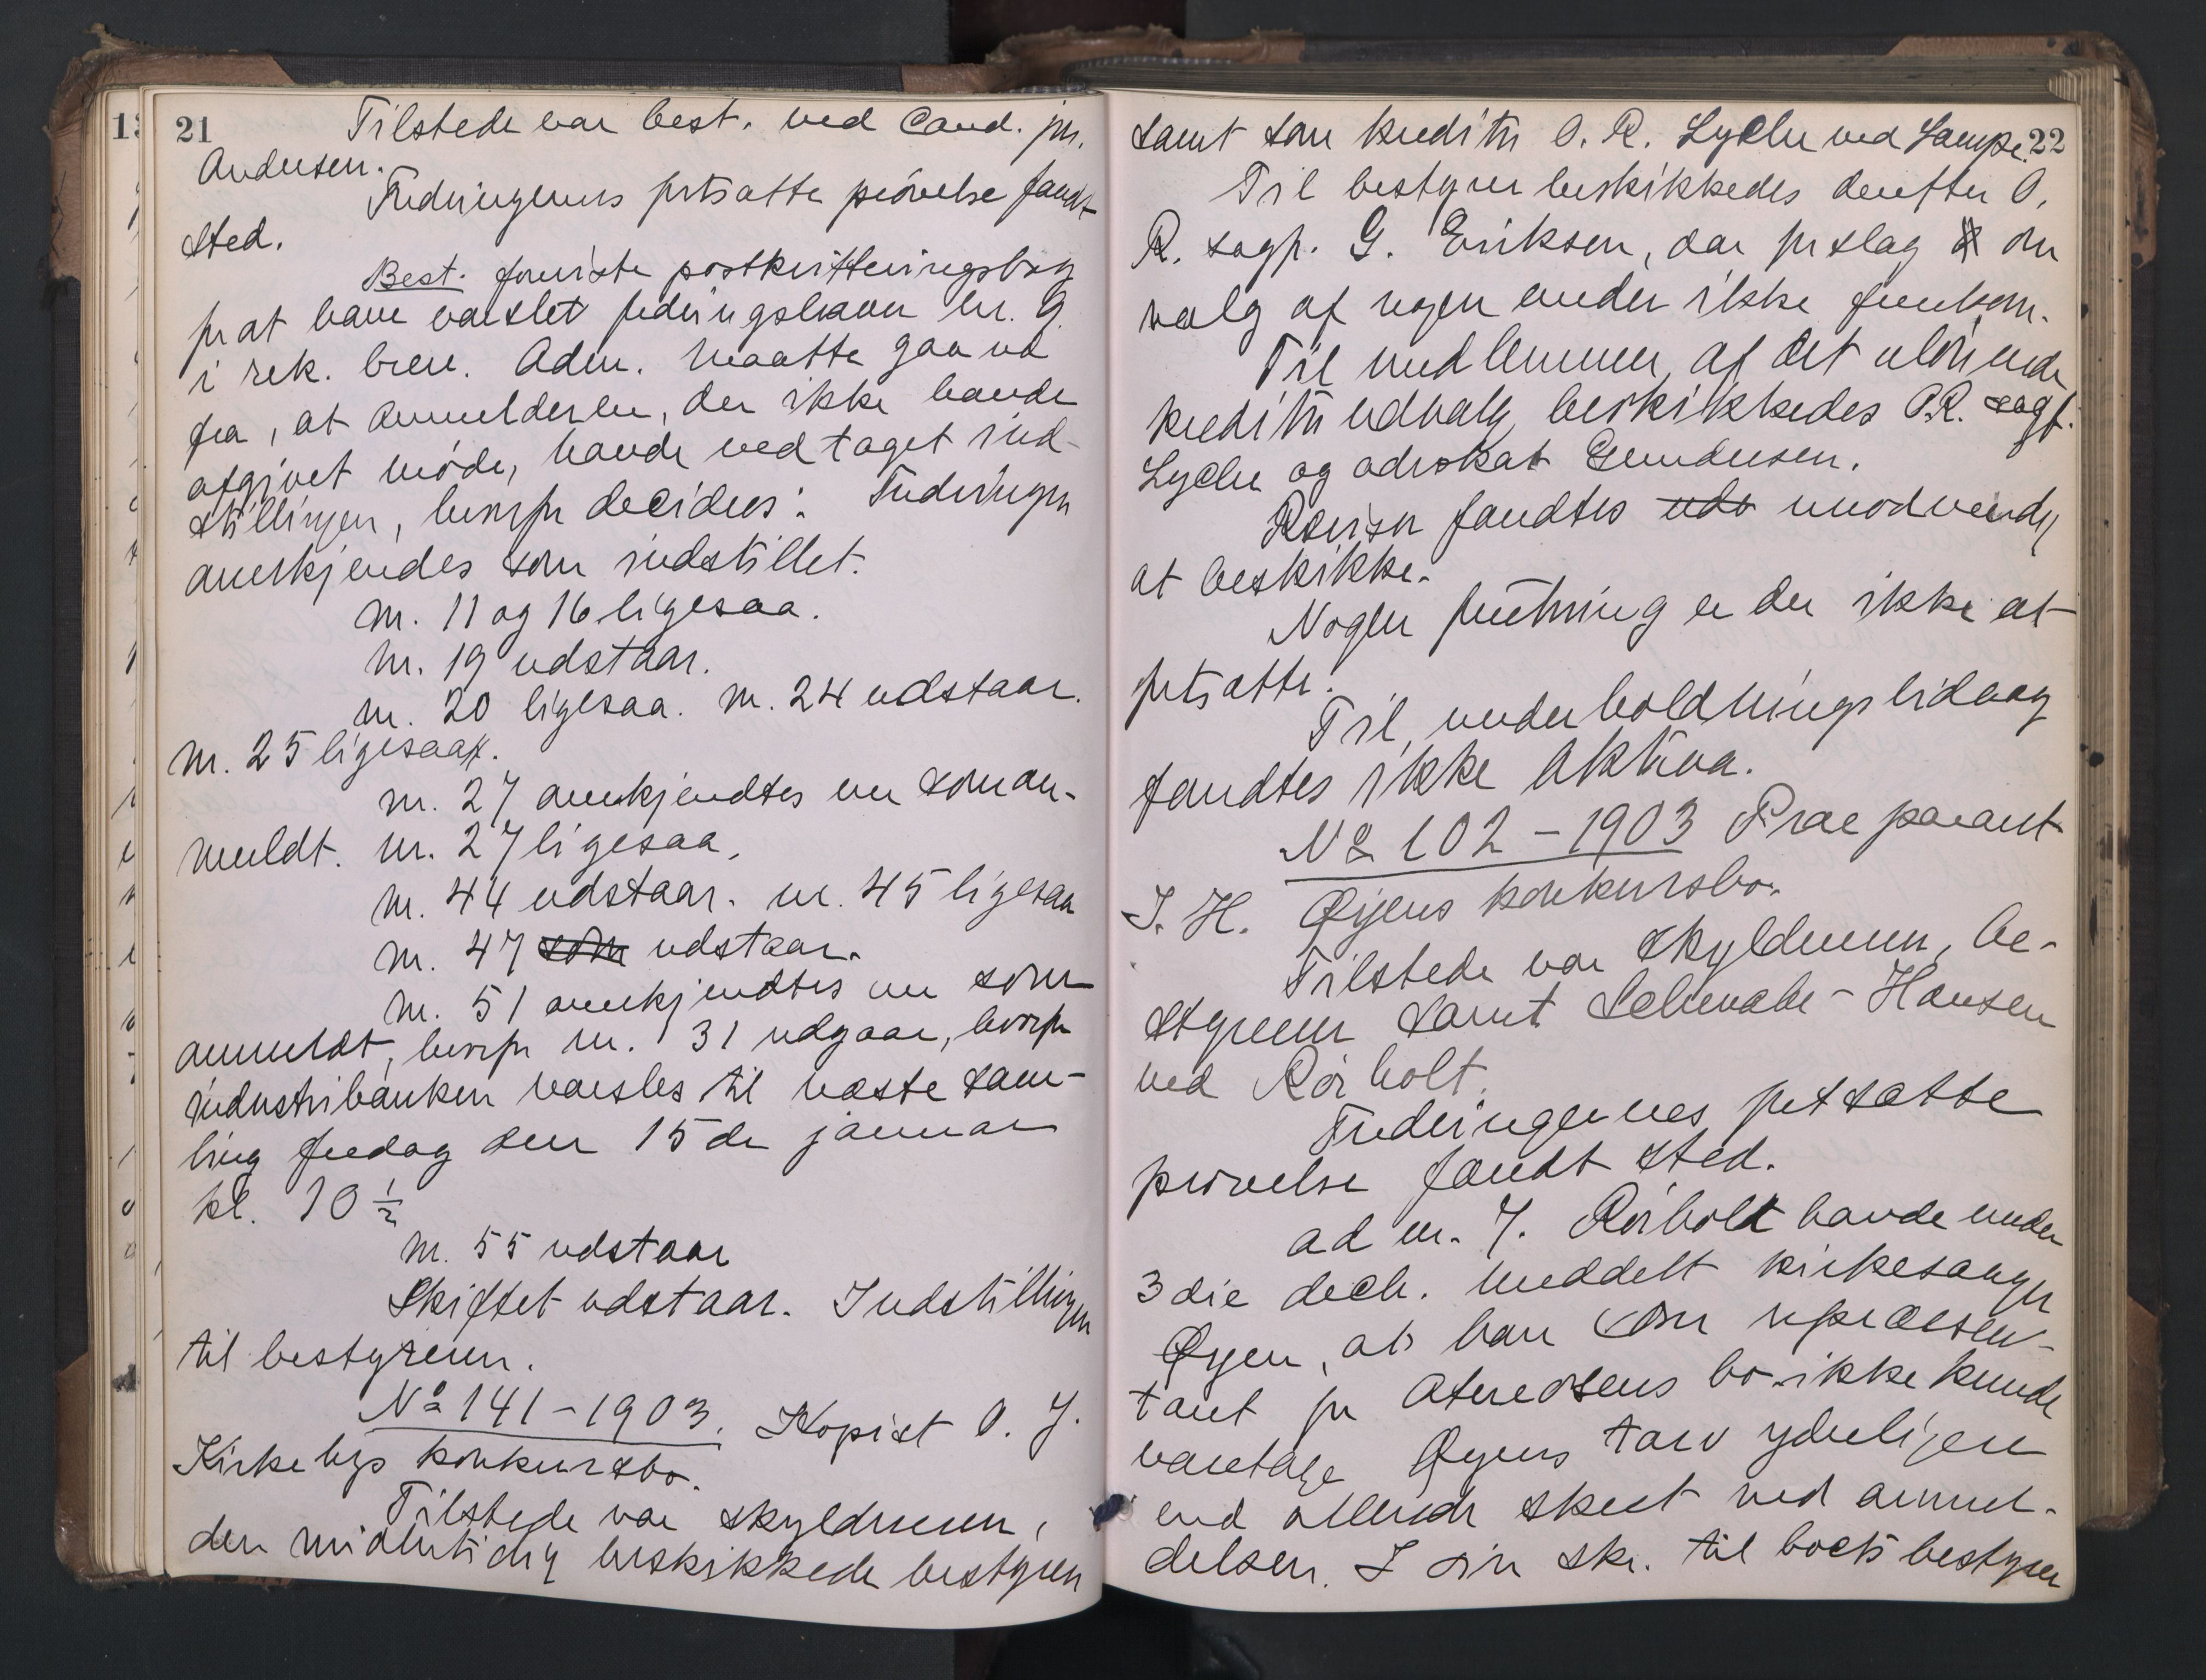 21
Tilstede var best. ved Cand. jur.
Andersen.
Fordringernes fortsatte prövelse fandt
sted.
Best. foreviste postkvitteringsbog
for at have varslet fordringshaver nr. 9
i rek. brev. Adm. maatte gaa ud
fra, at anmelderen, der ikke havde
afgivet möde, havde vedtaget ind-
stillingen, hvorfor decideres: Fordringen
anerkjendes som indstillet.
nr. 11 og 16 ligesaa.
nr. 19 udstaar.
nr. 20 ligesaa. nr. 24 udstaar.
nr. 25 ligesaa.
nr. 27 anerkjendtes nu som an-
meldt. nr. 27 ligesaa.
nr. 44 udstaar. nr. 45 ligesaa
nr. 47 som udstaar.
nr. 51 anerkjendtes nu som
anmeldt, hvorfor nr. 31 udgaar, hvorfor
industribanken varsles til næste sam-
ling fredag den 15de januar
kl. 10 1/2
nr. 55 udstaar
Skiftet udstaar. Indstillingen
til bestyreren.
No 141-1903. Kopist O. J.
Kirkebys konkursbo.
Tilstede var skyldneren,
den midlertidig beskikkede bestyrer
22
samt som kreditor O. R. Lyche ved Lampe.
Til bestyrer beskikkedes derefter O.
R. sagf. G. Eriksen, da forslag om
valg af nogen anden ikke fremkom.
Til medlemmer af det ulönnede
kreditorudvalg beskikkedes O.R. sagf.
Lyche og advokat Gundersen.
Revisor fandtes udv unödvendig
at beskikke.
Nogen forretning er der ikke at
fortsætte.
Til underholdningsbidrag
fandtes ikke aktiva.
No 102-1903 Præparant
J. H. Øyens konkursbo.
Tilstede var skyldneren, be-
styreren samt Schwabe-Hansen
ved Rörholt.
Fordringernes fortsatte
prövelse fandt sted.
ad nr. 7. Rörholt havde under
3die decb. meddelt kirkesanger
Øyen, at han som repræsen-
tant for bo ikke kunde
varetage Øyens tarv yderligere
end allerede skeet ved anmel-
delsen. I sin skr. til boets bestyrer